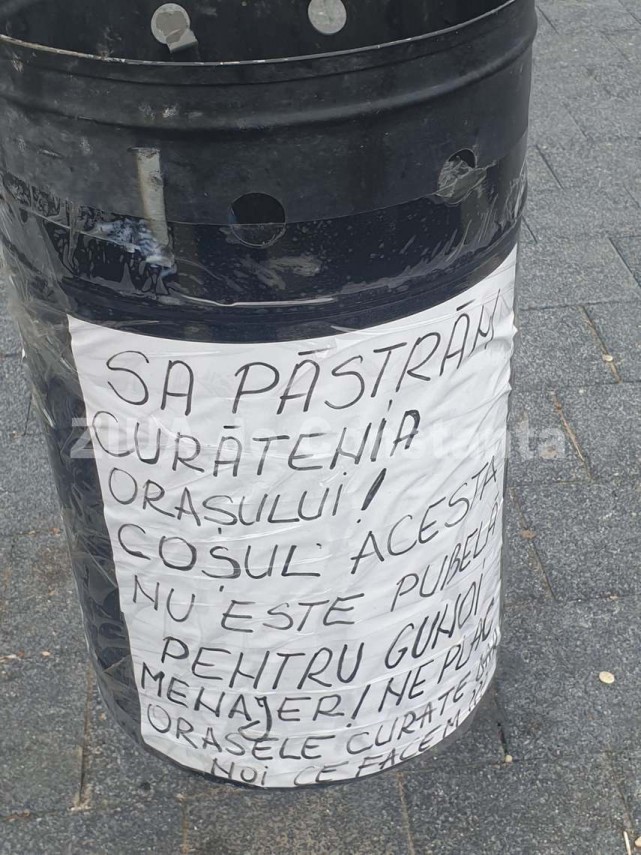 SA PĂSTRĂM
CURĂTENIA
ORAȘULUI!
COȘUL ACESTA
NU ESTE PUBELĂ
PENTRU GUNOI
MENAJER! NE PLAC
ORASELE CURATE
NOI CE FACEM
ZIUA de Constanta